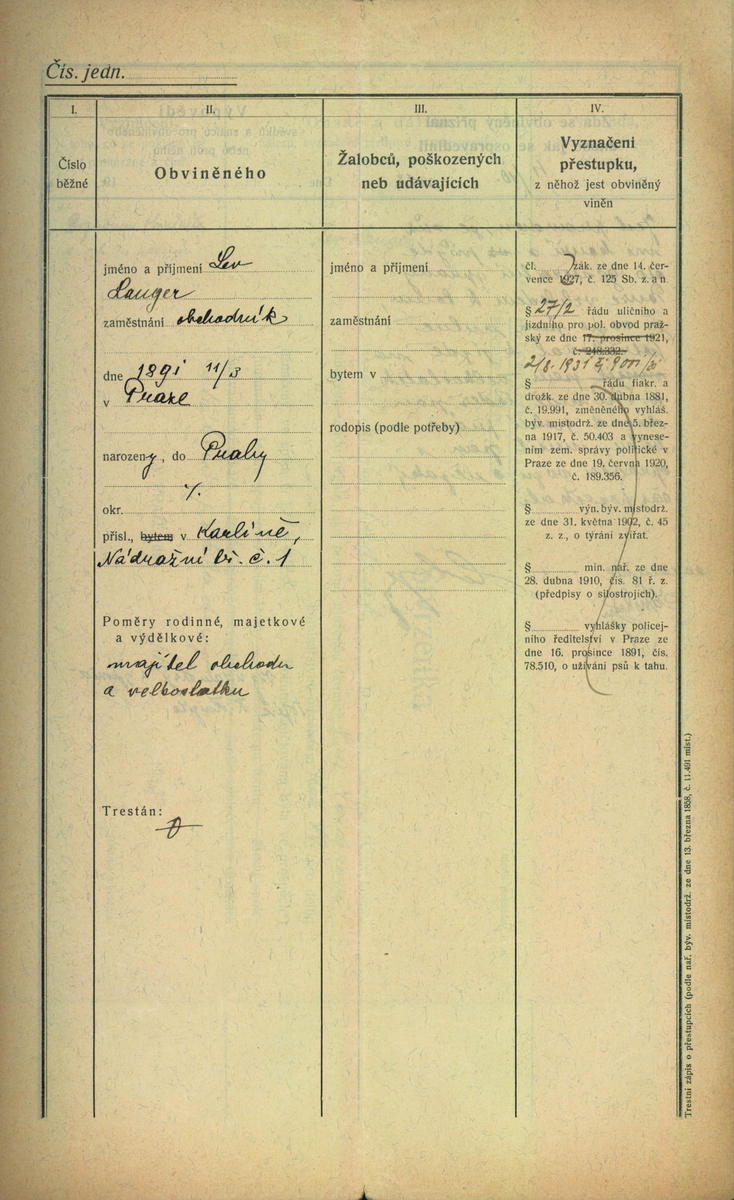 Čís. jedn.
I.
Číslo
běžné
II.
Obviněného
III.
Žalobců, poškozených
neb udávajících
IV.
Vyznačení
přestupku,
z něhož jest obviněný
viněn
jméno a příjmení Lev
Langer
zaměstnání obchodník
dne 1891 11/3
v Praze
narozený, do Prahy
okr. ⁒
přísl., bytem v Karlíně,
Nádražní tř. č. 1
Poměry rodinné, majetkové
a výdělkové:
majitel obchodu
a velkostatku
Trestán:
0
jméno a příjmení
zaměstnání
bytem v
rodopis (podle potřeby)
čl. zák. ze dne 14. čer-
vence 1927, č. 125 Sb. z. a n.
§ 27/2 řádu uličního a
jízdního pro pol. obvod praž-
ský ze dne 17. prosince 1921,
č. 248.332.
2/8. 1931 č. 900
§ řádu fiakr. a
drožk. ze dne 30. dubna 1881,
č. 19.991, změněného vyhláš.
býv. místodrž. ze dne 5. břez-
na 1917, č. 50.403 a vynese-
ním zem. správy politické v
Praze ze dne 19. června 1920,
č. 189.356.
§ výn. býv. místodrž.
ze dne 31. května 1902, č. 45
z. z., o týrání zvířat.
§ min. nař. ze dne
28. dubna 1910, čís. 81 ř. z.
(předpisy o silostrojích).
§ vyhlášky policej-
ního ředitelství v Praze ze
dne 16. prosince 1891, čís.
78.510, o užívání psů k tahu.
Trestní zápis o přestupcích (podle nař. býv. místodrž. ze dne 13. března 1858, č. 11.491 míst.)